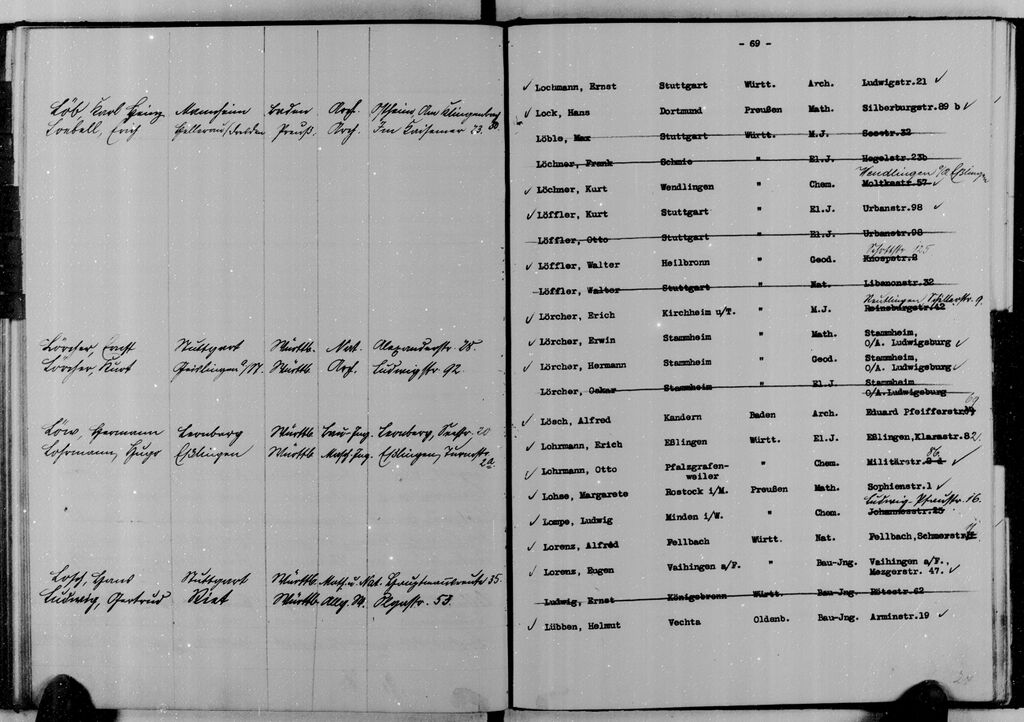 Löb, Karl Heinz Mannheim Baden Arch. Ostheim, Am Klingenbach
Loebell, Erich Hellerau/Dresden Preuß. Arch. Im Kaisemer 23. 30
Lörcher, Ernst Stuttgart Württb. Nat. Alexanderstr. 28.
Lörcher, Kurt Geislingen a/St. Württb. Arch. Ludwigstr. 92.
Löw, Hermann Leonberg Württb. Bau-Ing. Leonberg, Seestr. 20
Lohrmann, Hugo Eßlingen Württb. Masch-Ing. Eßlingen, Turmstr.
2a
Losch, Hans Stuttgart Württb. Math. u. Nat. Hauptmannsreute 35.
Ludwig, Gertrud Riet Württb. Allg. W. Olgastr. 53.
- 69 -
✓ Lochmann, Ernst Stuttgart Württ. Arch. Ludwigstr.21 ✓
✓ Lock, Hans Dortmund Preußen Math. Silberburgstr.89 b ✓
Löble, Max Stuttgart Württ. M.J. Seestr.32
Löchner, Frank Schmie " El.J. Hegelstr.23b
Wendlingen O/A Eßlingen
✓ Löchner, Kurt Wendlingen " Chem. Moltkestr.57 ✓
✓ Löffler, Kurt Stuttgart " El.J. Urbanstr.98 ✓
Löffler, Otto Stuttgart " El.J. Urbanstr.98
125
✓ Löffler, Walter Heilbronn " Geod. Knospstr.8
Löffler, Walter Stuttgart " Nat. Libanonstr.32
Reutlingen Schillerstr. 9.
✓ Lörcher, Erich Kirchheim u/T. " M.J. Reinsburgstr.142
✓ Lörcher, Erwin Stammheim " Math. Stammheim,
O/A. Ludwigsburg ✓
✓ Lörcher, Hermann Stammheim " Geod. Stammheim,
O/A. Ludwigsburg ✓
Lörcher, Oskar Stammheim " El.J. Stammheim
O/A.Ludwigsburg
✓ Lösch, Alfred Kandern Baden Arch. Eduard Pfeifferstr.
✓ Lohrmann, Erich Eßlingen Württ. El.J. Eßlingen,Klarastr.82.
86.
✓ Lohrmann, Otto Pfalzgrafen-
weiler " Chem. Militärstr. ✓
✓ Lohse, Margarete Rostock i/M. Preußen Math. Sophienstr.1 ✓
Ludwig-Pfaustr. 16.
✓ Lompe, Ludwig Minden i/W. " Chem. Johannesstr.23
✓ Lorenz, Alfred Fellbach Württ. Nat. Fellbach,Schmerstr.
✓ Lorenz, Eugen Vaihingen a/F. " Bau-Jng. Vaihingen a/F.,
Mezgerstr. 47. ✓
Ludwig, Ernst Königsbronn Württ. Bau-Jng. Rötestr.62
✓ Lübben, Helmut Vechta Oldenb. Bau-Jng. Arminstr.19 ✓